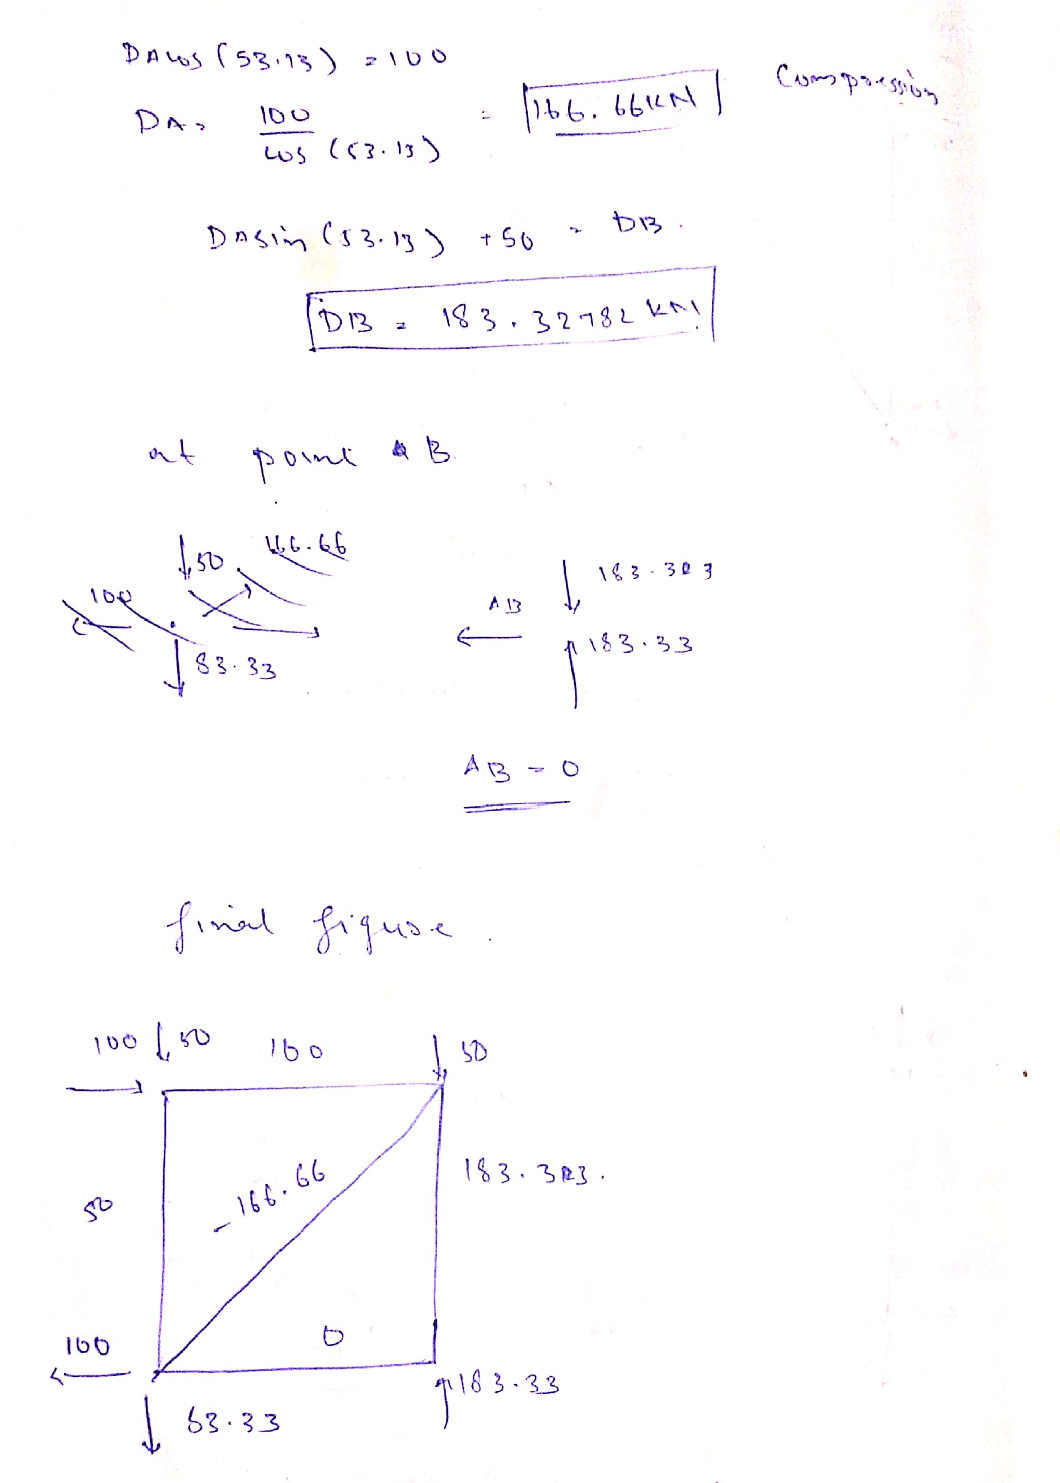 DA cos (53.13) = 100
DA = 100 / cos (53.13) = 166.66 KN Compression
DA sin (53.13) + 50 = DB.
DB = 183.32782 KN
at point B.
50 166.66
100
83.33
AB 183.33
183.33
AB = 0
final figure.
100 50 100 50
50 -166.66 183.33.
100 0
83.33 183.33